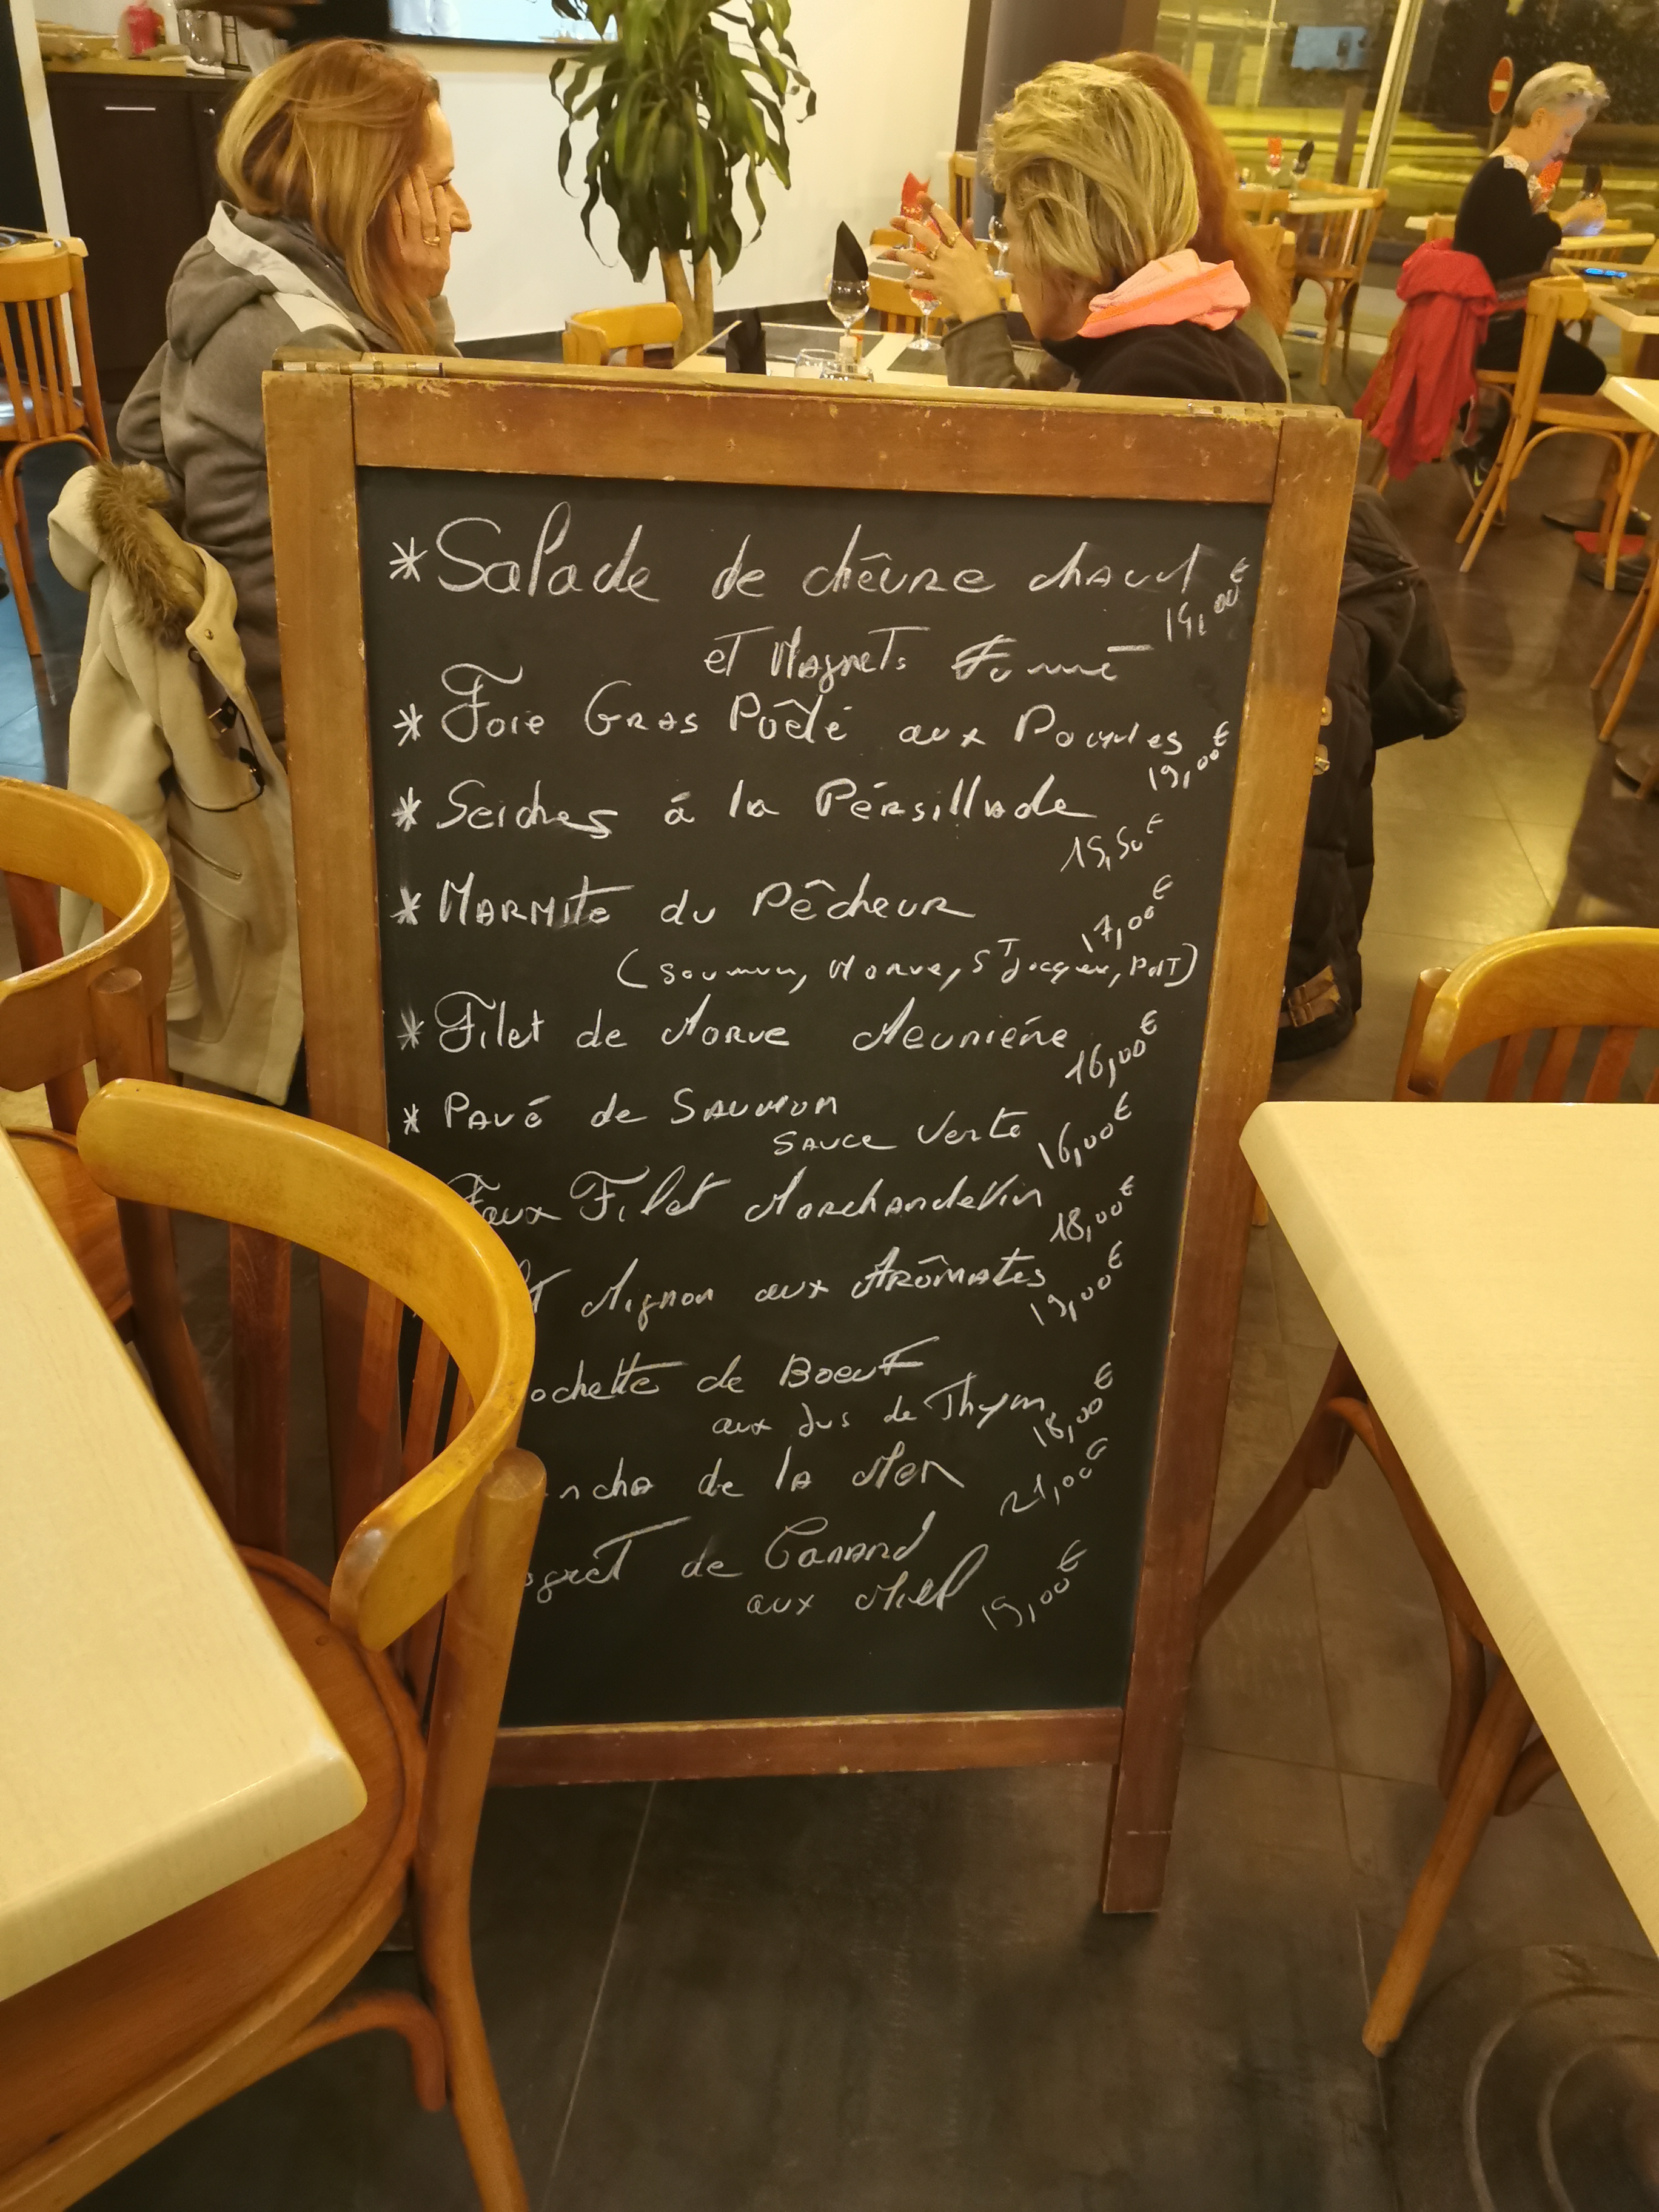 * Salade de chêvre chaud
14,00€
et Magrets Fumé
* Foie Gras Poêlé aux Pommes
19,00€
* Seiches á la Pérsillade
15,50€
* Marmite du Pêcheur
17,00€
(Saumon, Morue, St Jacques, Pdt)
* Filet de Morue Meuniére
16,00€
* Pavé de Saumon
Sauce Verte 16,00€
Faux Filet Marchandevin
18,00€
Mignon aux Arômates
19,00€
ochette de Boeuf
aux Jus de Thym 18,00€
ncha de la Mer 21,00€
gret de Canard
aux Miel 19,00€